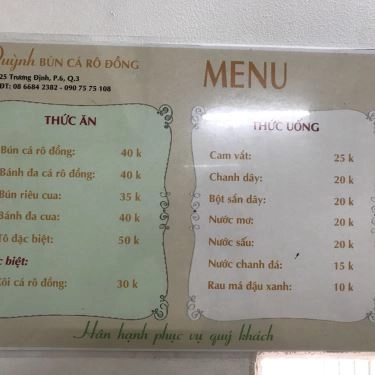 Quỳnh BÚN CÁ RÔ ĐỒNG
25 Trương Định, P.6, Q.3
ĐT: 08 6684 2382 - 090 75 75 108
MENU
THỨC ĂN
Bún cá rô đồng: 40 k
Bánh đa cá rô đồng: 40 k
Bún riêu cua: 35 k
Bánh đa cua: 40 k
Tô đặc biệt: 50 k
biệt:
cá rô đồng: 30 k
THỨC UỐNG
Cam vắt: 25 k
Chanh dây: 20 k
Bột sắn dây: 20 k
Nước mơ: 20 k
Nước sấu: 20 k
Nước chanh đá: 15 k
Rau má đậu xanh: 10 k
Hân hạnh phục vụ quý khách